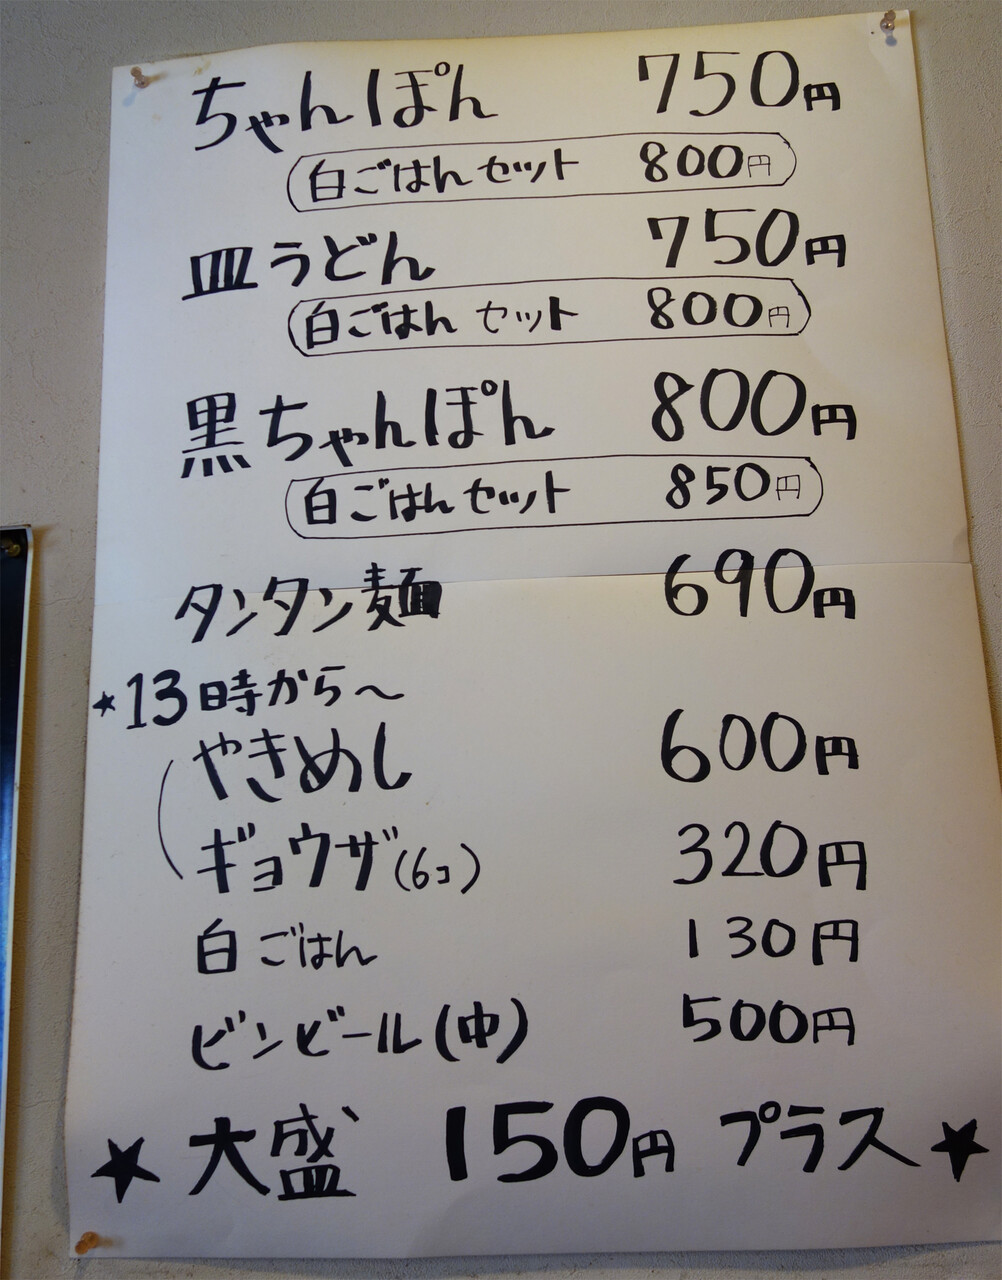 ちゃんぽん 750円
白ごはんセット 800円
皿うどん 750円
白ごはん セット 800円
黒ちゃんぽん 800円
白ごはんセット 850円
タンタン麺 690円
★13時から～
やきめし 600円
ギョウザ(6コ) 320円
白ごはん 130円
ビンビール(中) 500円
★大盛 150円 プラス★